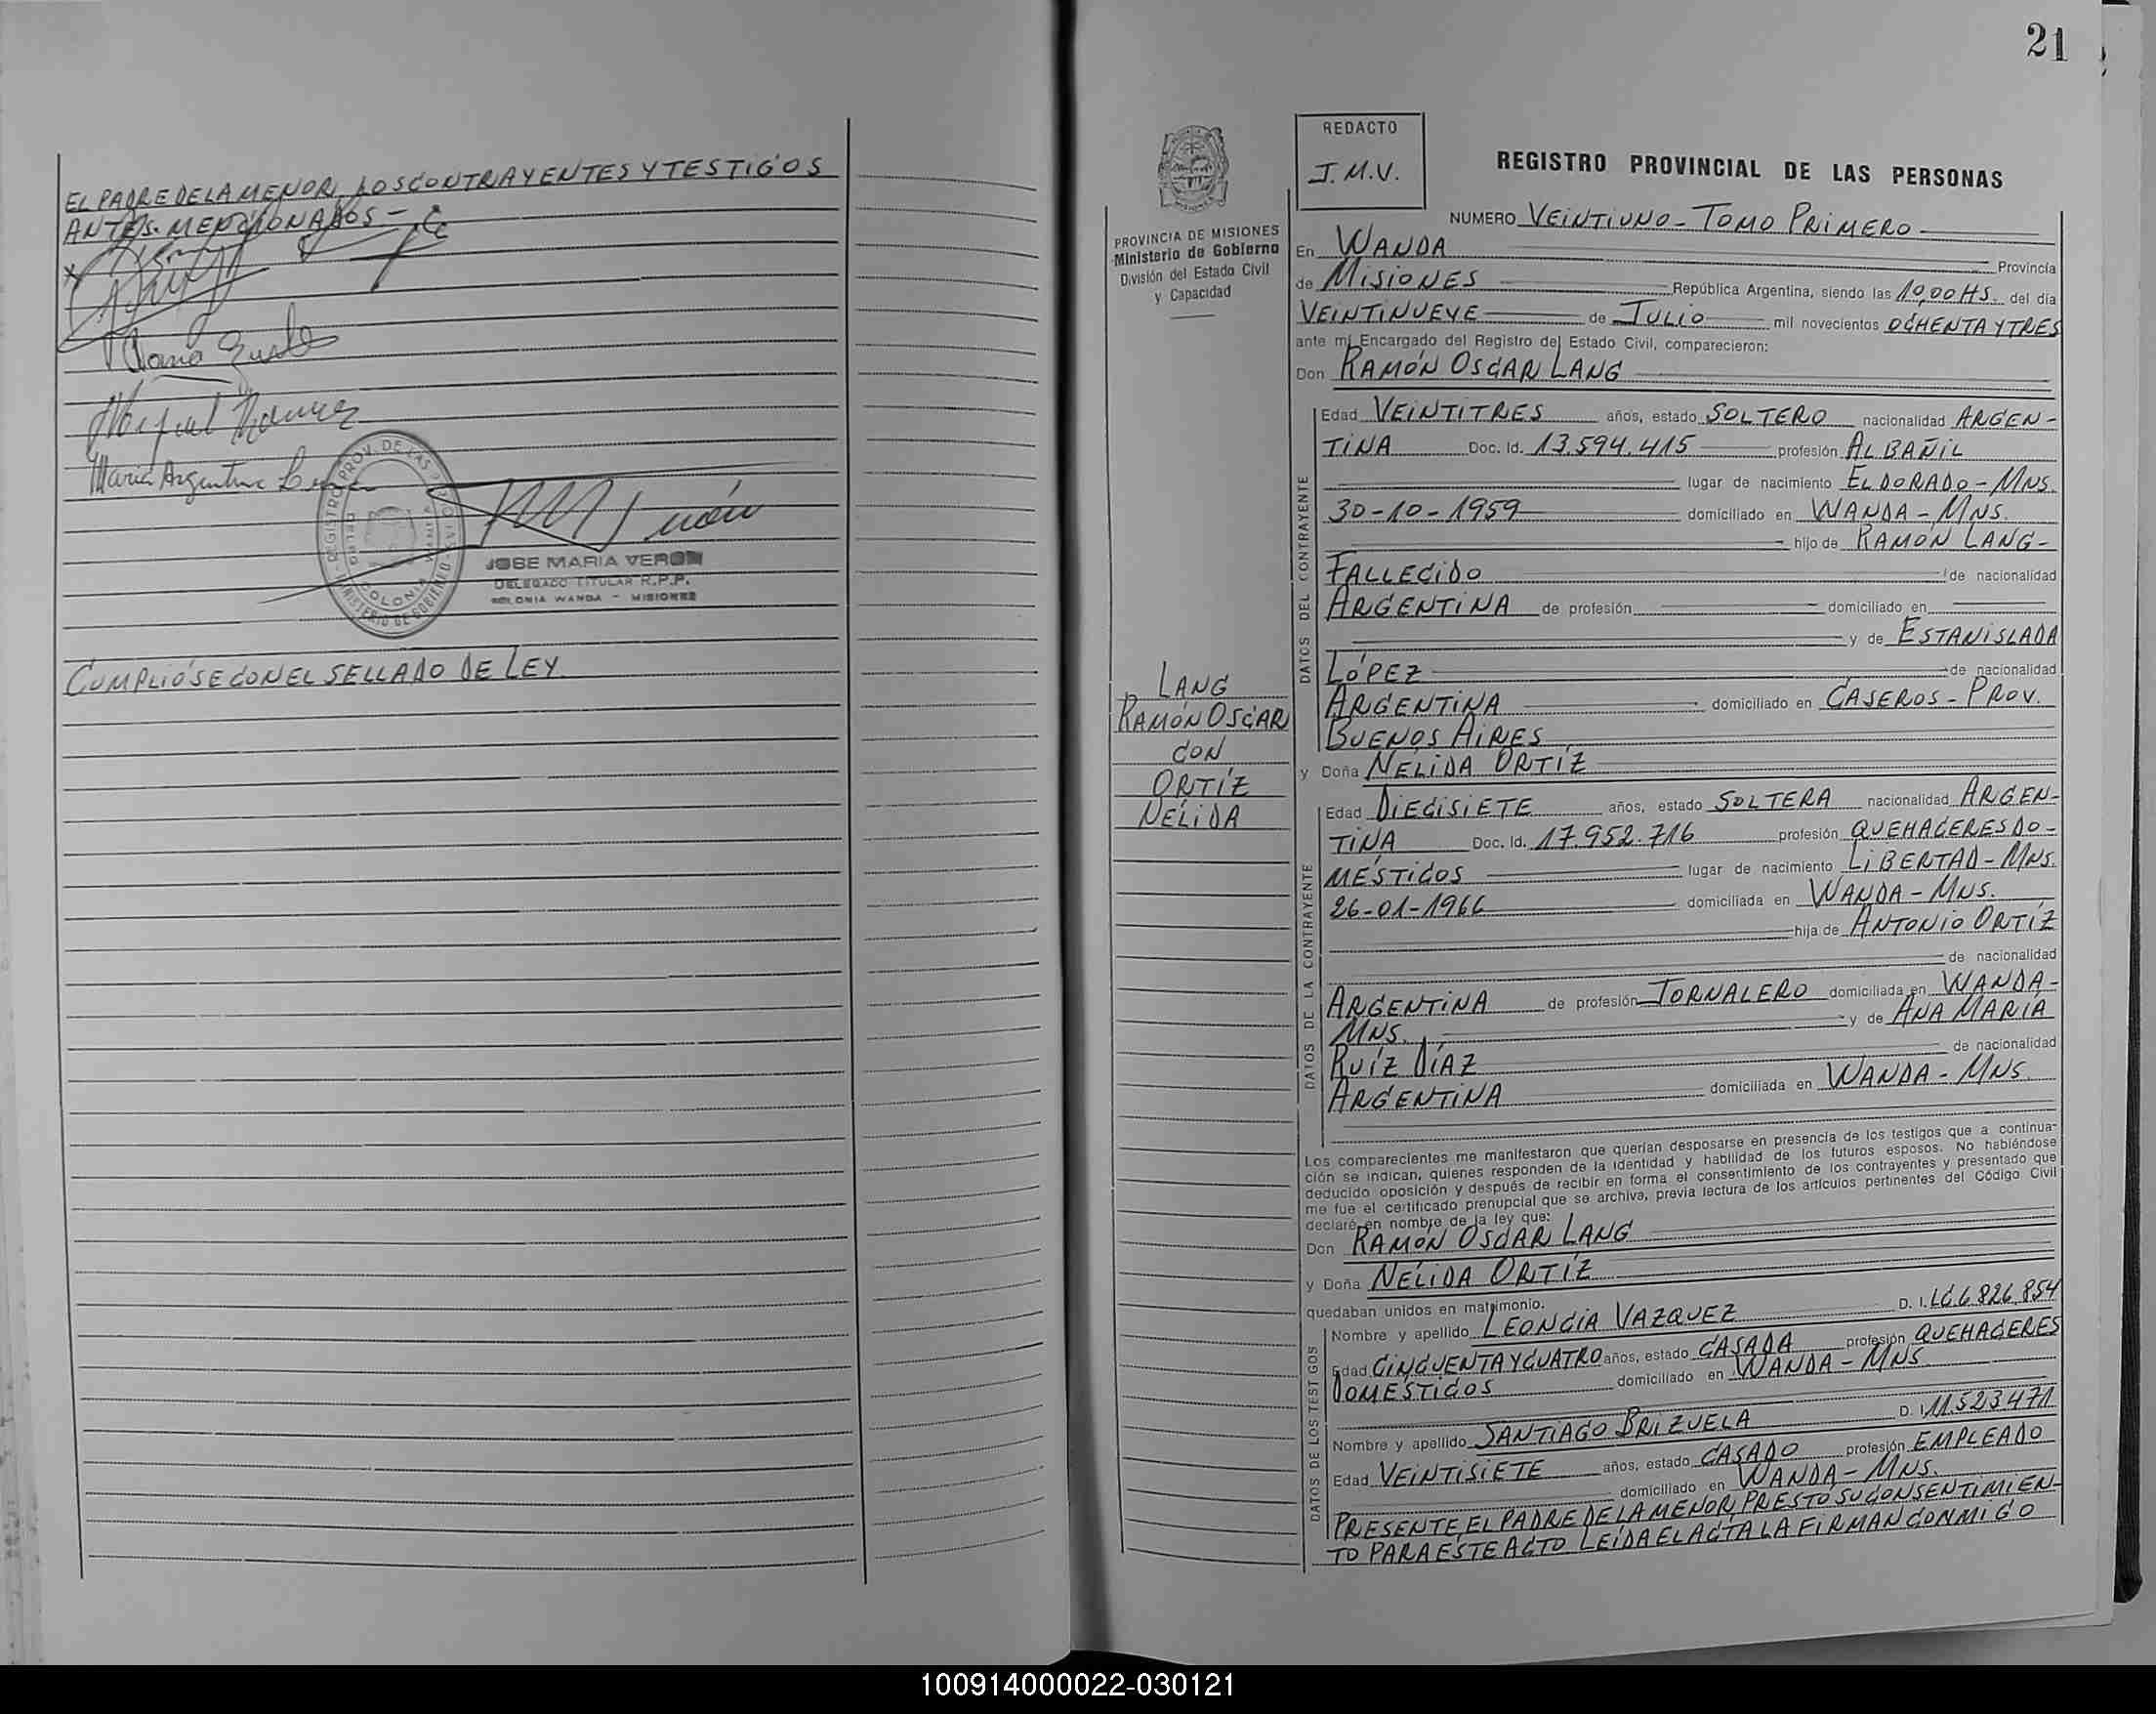 EL PADRE DE LA MENOR, LOS CONTRAYENTES Y TESTIGOS
ANTES MENCIONADOS -
JOSE MARIA VERON
DELEGADO TITULAR R.P.P.
COLONIA WANDA - MISIONES
CUMPLIÓSE CON EL SELLADO DE LEY
21
PROVINCIA DE MISIONES
Ministerio de Gobierno
División del Estado Civil
y Capacidad
LANG
RAMÓN OSCAR
CON
ORTÍZ
NÉLIDA
REDACTO
J.M.V.
REGISTRO PROVINCIAL DE LAS PERSONAS
NUMERO VEINTIUNO - TOMO PRIMERO
En WANDA Provincia
de MISIONES República Argentina, siendo las 10,00 HS. del día
VEINTINUEVE de JULIO mil novecientos OCHENTA Y TRES
ante mí Encargado del Registro del Estado Civil, comparecieron:
Don RAMÓN OSCAR LANG
DATOS DEL CONTRAYENTE
Edad VEINTITRES años, estado SOLTERO nacionalidad ARGEN-
TINA Doc. Id. 13.594.415 profesión ALBAÑIL
lugar de nacimiento ELDORADO - MNS.
30-10-1959 domiciliado en WANDA - MNS.
hijo de RAMÓN LANG -
FALLECIDO de nacionalidad
ARGENTINA de profesión domiciliado en
y de ESTANISLADA
LÓPEZ de nacionalidad
ARGENTINA domiciliado en CASEROS - PROV.
BUENOS AIRES
y Doña NÉLIDA ORTÍZ
DATOS DE LA CONTRAYENTE
Edad DIECISIETE años, estado SOLTERA nacionalidad ARGEN-
TINA Doc. Id. 17.952.716 profesión QUEHACERES DO-
MÉSTICOS lugar de nacimiento LIBERTAD - MNS.
26-01-1966 domiciliada en WANDA - MNS.
hija de ANTONIO ORTÍZ
de nacionalidad
ARGENTINA de profesión JORNALERO domiciliada en WANDA -
MNS. y de ANA MARÍA
RUÍZ DÍAZ de nacionalidad
ARGENTINA domiciliada en WANDA - MNS.
Los comparecientes me manifestaron que querían desposarse en presencia de los testigos que a continua-
ción se indican, quienes responden de la identidad y habilidad de los futuros esposos. No habiéndose
deducido oposición y después de recibir en forma el consentimiento de los contrayentes y presentado que
me fue el certificado prenupcial que se archiva, previa lectura de los artículos pertinentes del Código Civil
declaré en nombre de la ley que:
Don RAMÓN OSCAR LANG
y Doña NÉLIDA ORTÍZ
quedaban unidos en matrimonio.
DATOS DE LOS TESTIGOS
Nombre y apellido LEONCIA VAZQUEZ D. I. LC 6.826.854
Edad CINCUENTA Y CUATRO años, estado CASADA profesión QUEHACERES
DOMÉSTICOS domiciliado en WANDA - MNS
Nombre y apellido SANTIAGO BRIZUELA D. I. 11.523.471
Edad VEINTISIETE años, estado CASADO profesión EMPLEADO
domiciliado en WANDA - MNS.
PRESENTE, EL PADRE DE LA MENOR, PRESTÓ SU CONSENTIMIEN-
TO PARA ESTE ACTO. LEÍDA EL ACTA LA FIRMAN CONMIGO
100914000022-030121